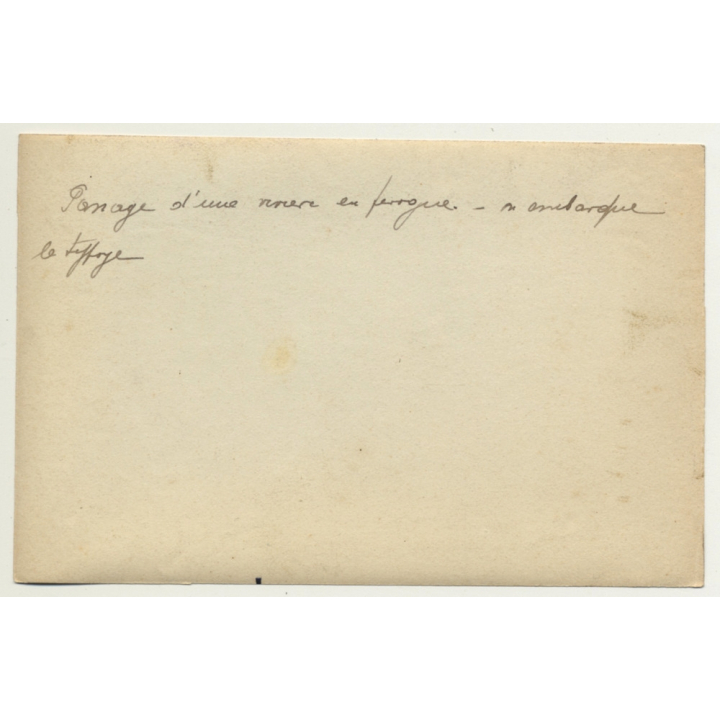 Passage d'une rivière en pirogue. – on embarque
le tippoye